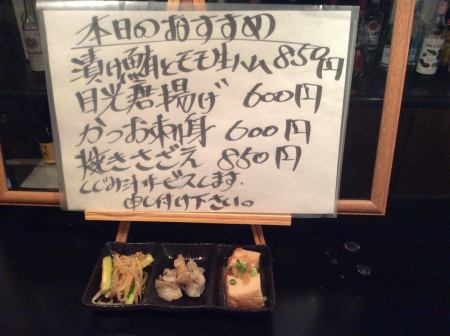 本日のおすすめ
漬け鮪とモモ生ハム 850円
目光唐揚げ 600円
かつお刺身 600円
焼きさざえ 850円
しじみ汁サービスします。
申し付け下さい。